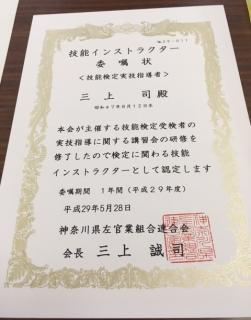 技能インストラクター
委嘱状
＜技能検定実技指導者＞
三上 司 殿
昭和47年8月12日生
本会が主催する技能検定受検者の
実技指導に関する講習会の研修を
修了したので検定に関わる技能
インストラクターとして認定します
委嘱期間 1年間（平成29年度）
平成29年5月28日
神奈川県左官業組合連合会
会長 三上 誠司